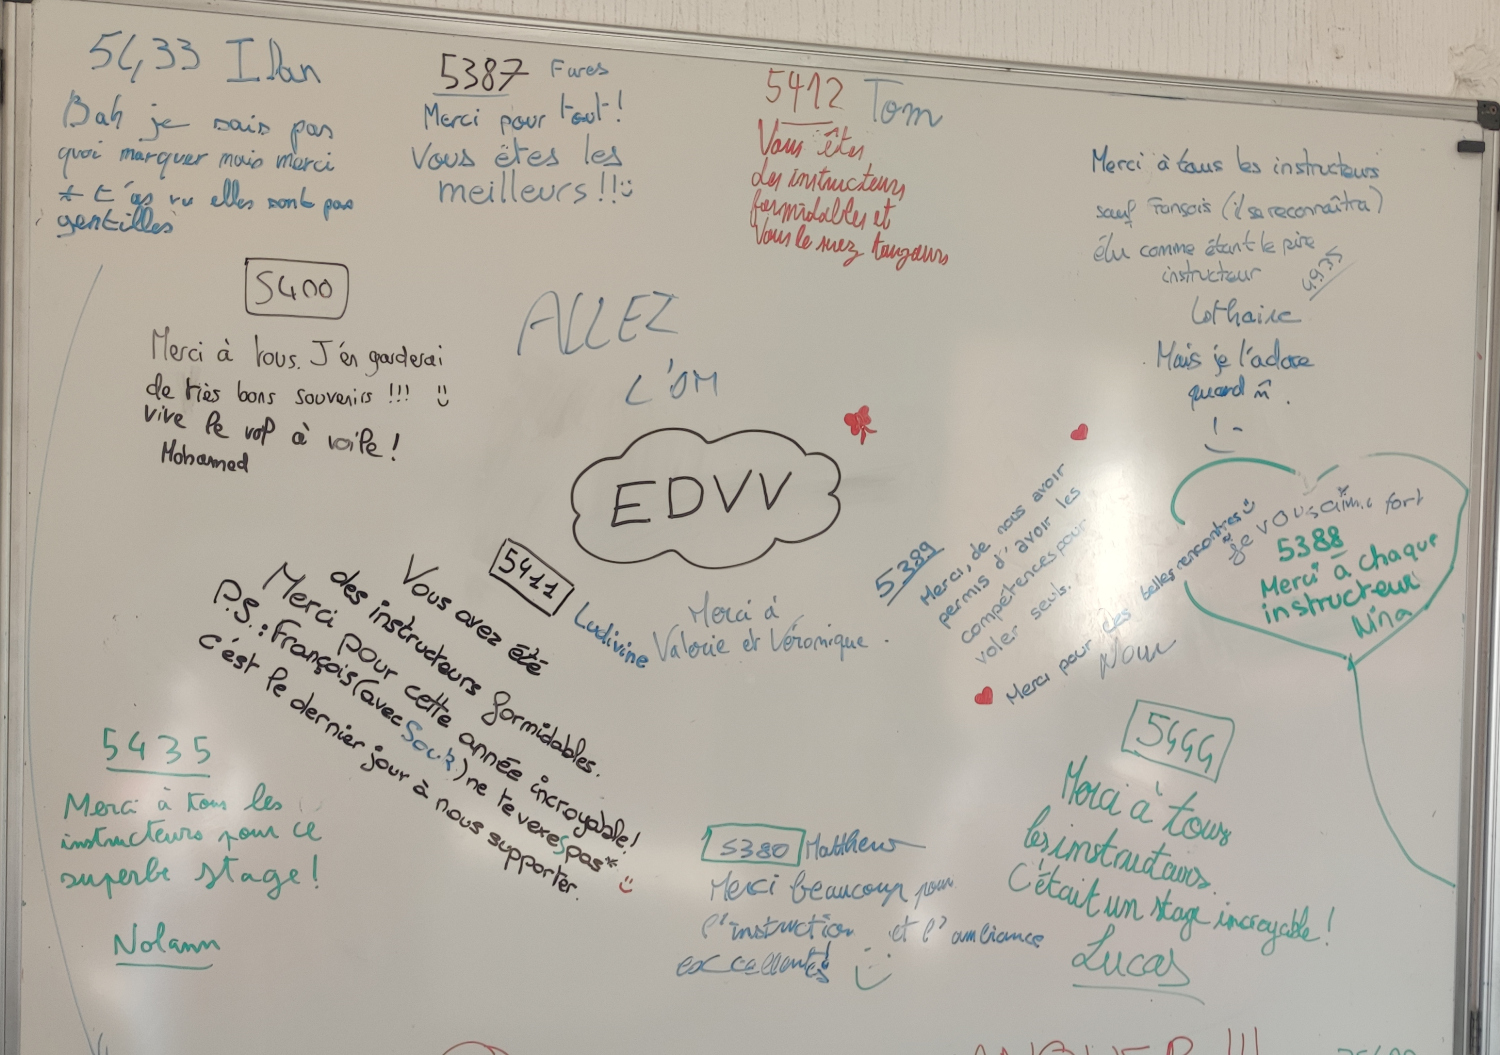 5433 Ilan
Bah je sais pas
quoi marquer mais merci
* t'as vu elles sont pas
gentilles
5387 Fares
Merci pour tout !
Vous êtes les
meilleurs !!
5412 Tom
Vous êtes
des instructeurs
formidables et
Vous le
Merci à tous les instructeurs
sauf François (il se reconnaîtra)
élu comme étant le pire
instructeur
4935
Lothaire
Mais je l'adore
quand m̂.
5400
Merci à tous. J'en garderai
de très bons souvenirs !!!
vive le vol à voile !
Mohamed
ALLEZ
L'OM
EDVV
5411
Ludivine
Vous avez été
des instructeurs formidables.
Merci pour cette année incroyable!
P.S. : François (avec ) ne te vexes pas*
c'est le dernier jour à nous supporter.
Merci à
Valerie et Véronique.
5389
Merci, de nous avoir
permis d'avoir les
compétences pour
voler seuls.
Merci pour des belles rencontres
Nour
je vous aime* fort
5388
Merci à chaque
instructeur
Nina
5435
Merci à tous les
instructeurs pour ce
superbe stage !
Nolann
5380 Matthew
Merci beaucoup pour
l'instruction et l'ambiance
5444
Merci à tous
les instructeurs.
C'était un stage incroyable !
Lucas